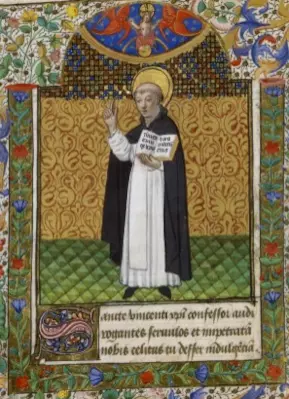 Sancte vincenti xp̄i confessor audi
rogantes servulos et impetratā
nobis celitus tu deffer indulgētiā